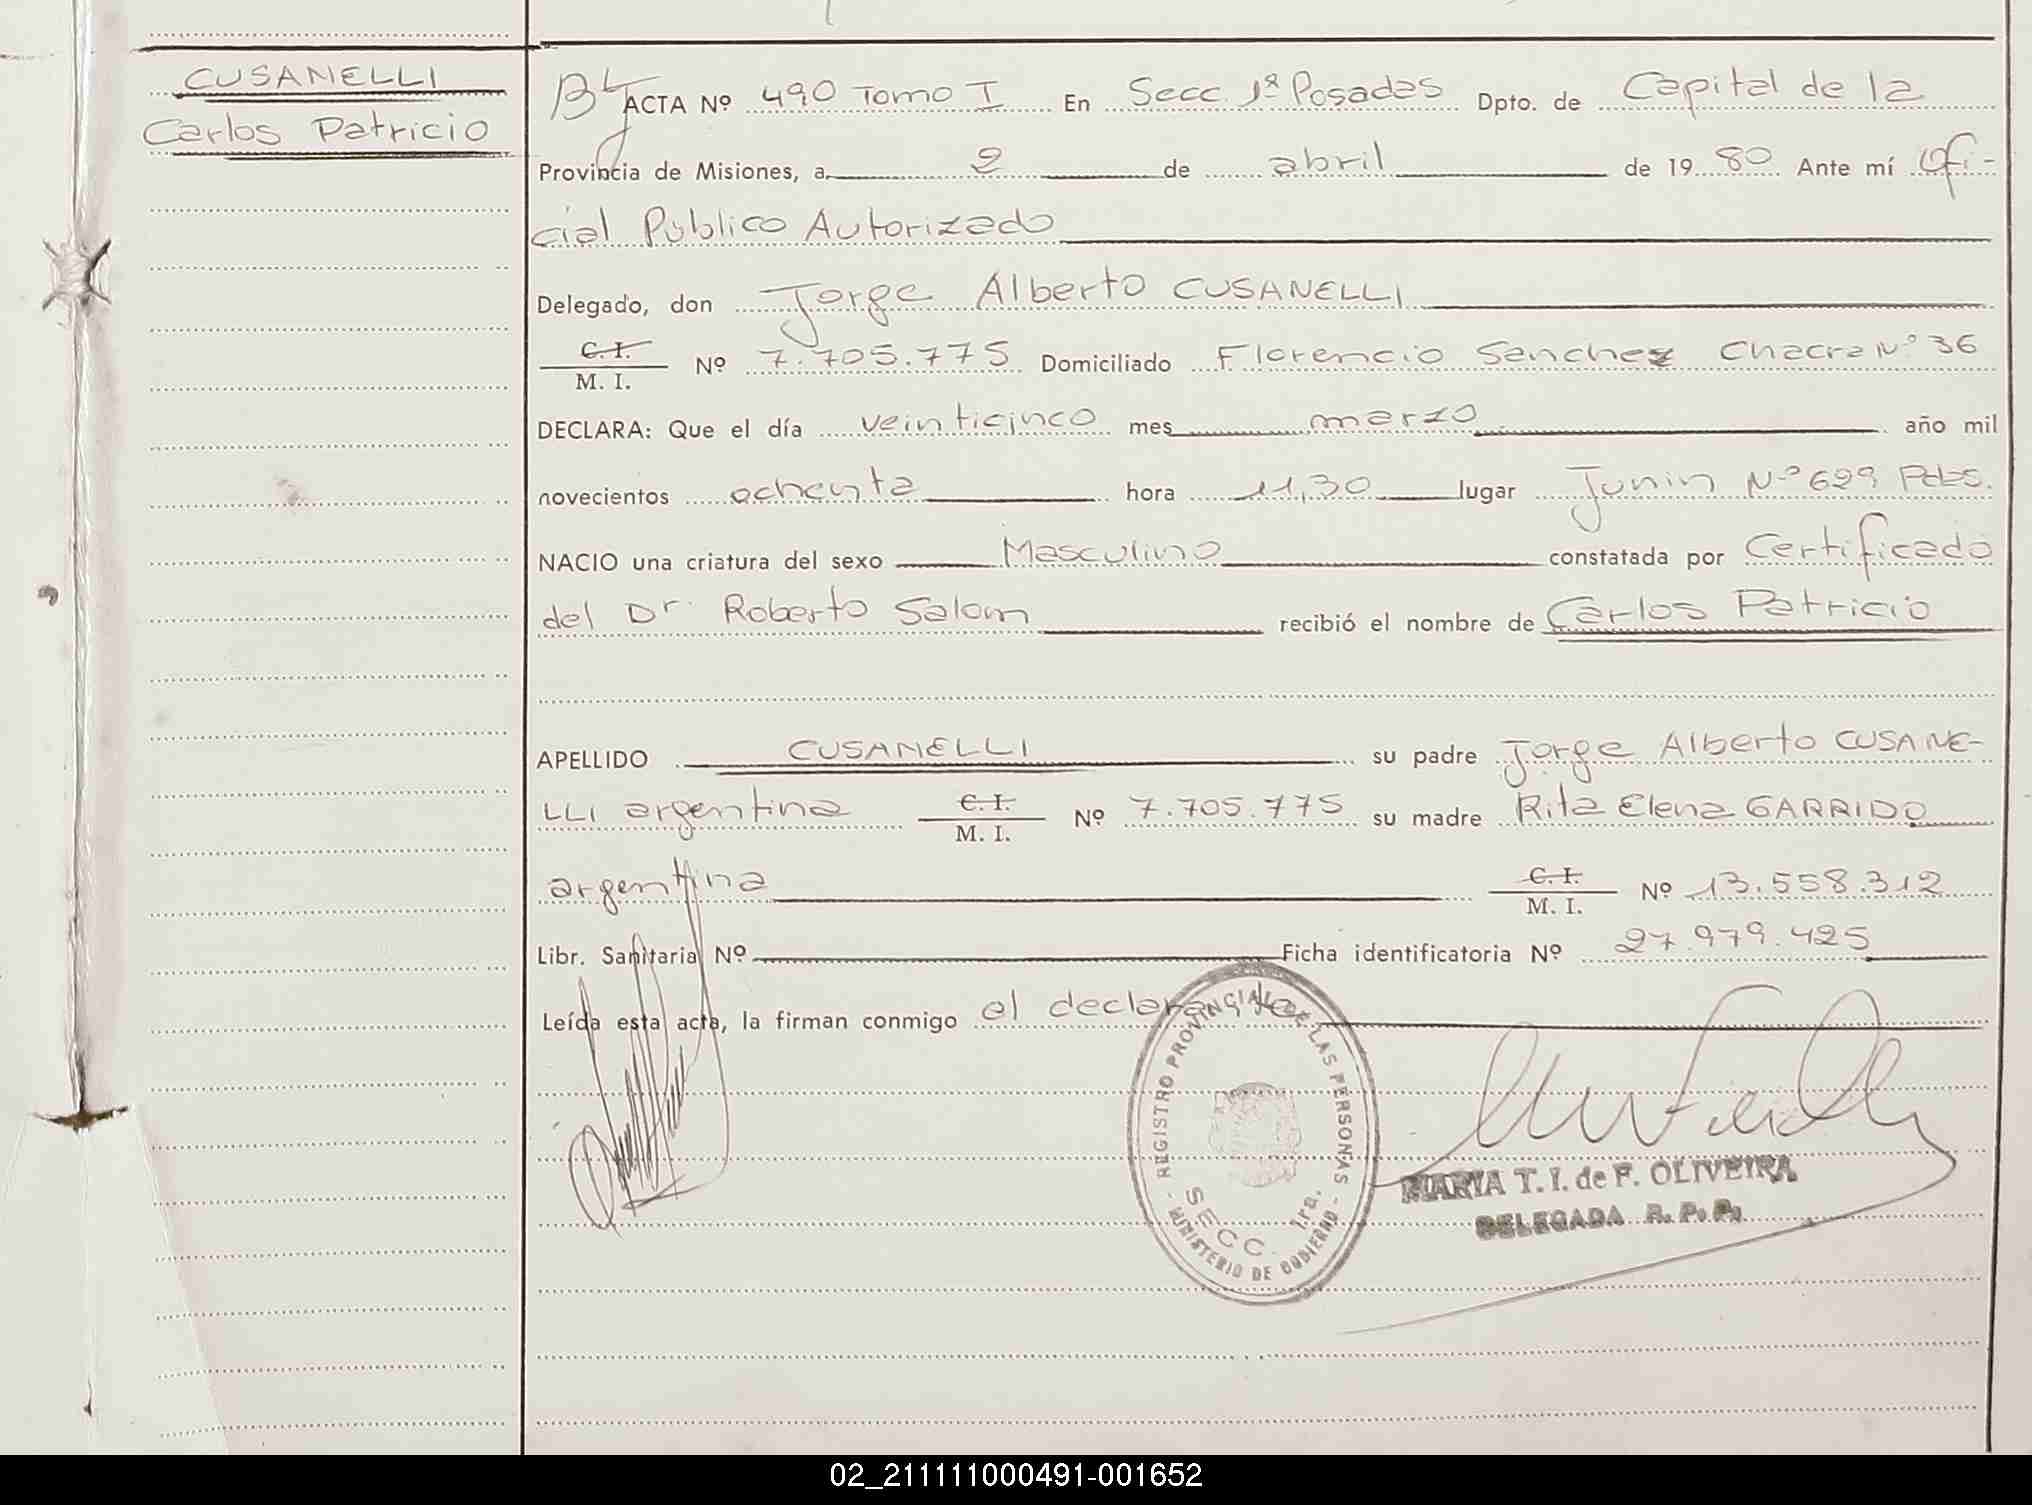 CUSANELLI
Carlos Patricio
ACTA Nº 490 Tomo I En Secc. 1ª Posadas Dpto. de Capital de la
Provincia de Misiones, a 2 de abril de 1980 Ante mí Ofi-
cial Público Autorizado
Delegado, don Jorge Alberto CUSANELLI
C. I. / M. I. Nº 7.705.775 Domiciliado Florencio Sanchez Chacra Nº 36
DECLARA: Que el día veinticinco mes marzo año mil
novecientos ochenta hora 11,30 lugar Junin Nº 629 Pdas.
NACIO una criatura del sexo Masculino constatada por Certificado
del Dr. Roberto Salom recibió el nombre de Carlos Patricio
APELLIDO CUSANELLI su padre Jorge Alberto CUSANE-
LLI argentina C. I. / M. I. Nº 7.705.775 su madre Rita Elena GARRIDO
argentina C. I. / M. I. Nº 13.558.312
Libr. Sanitaria Nº Ficha identificatoria Nº 27.979.425
Leída esta acta, la firman conmigo el declarante
REGISTRO PROVINCIAL DE LAS PERSONAS
SECC. 1ra.
MINISTERIO DE GOBIERNO
MARIA T. I. de F. OLIVEIRA
DELEGADA R. P. P.
02_211111000491-001652